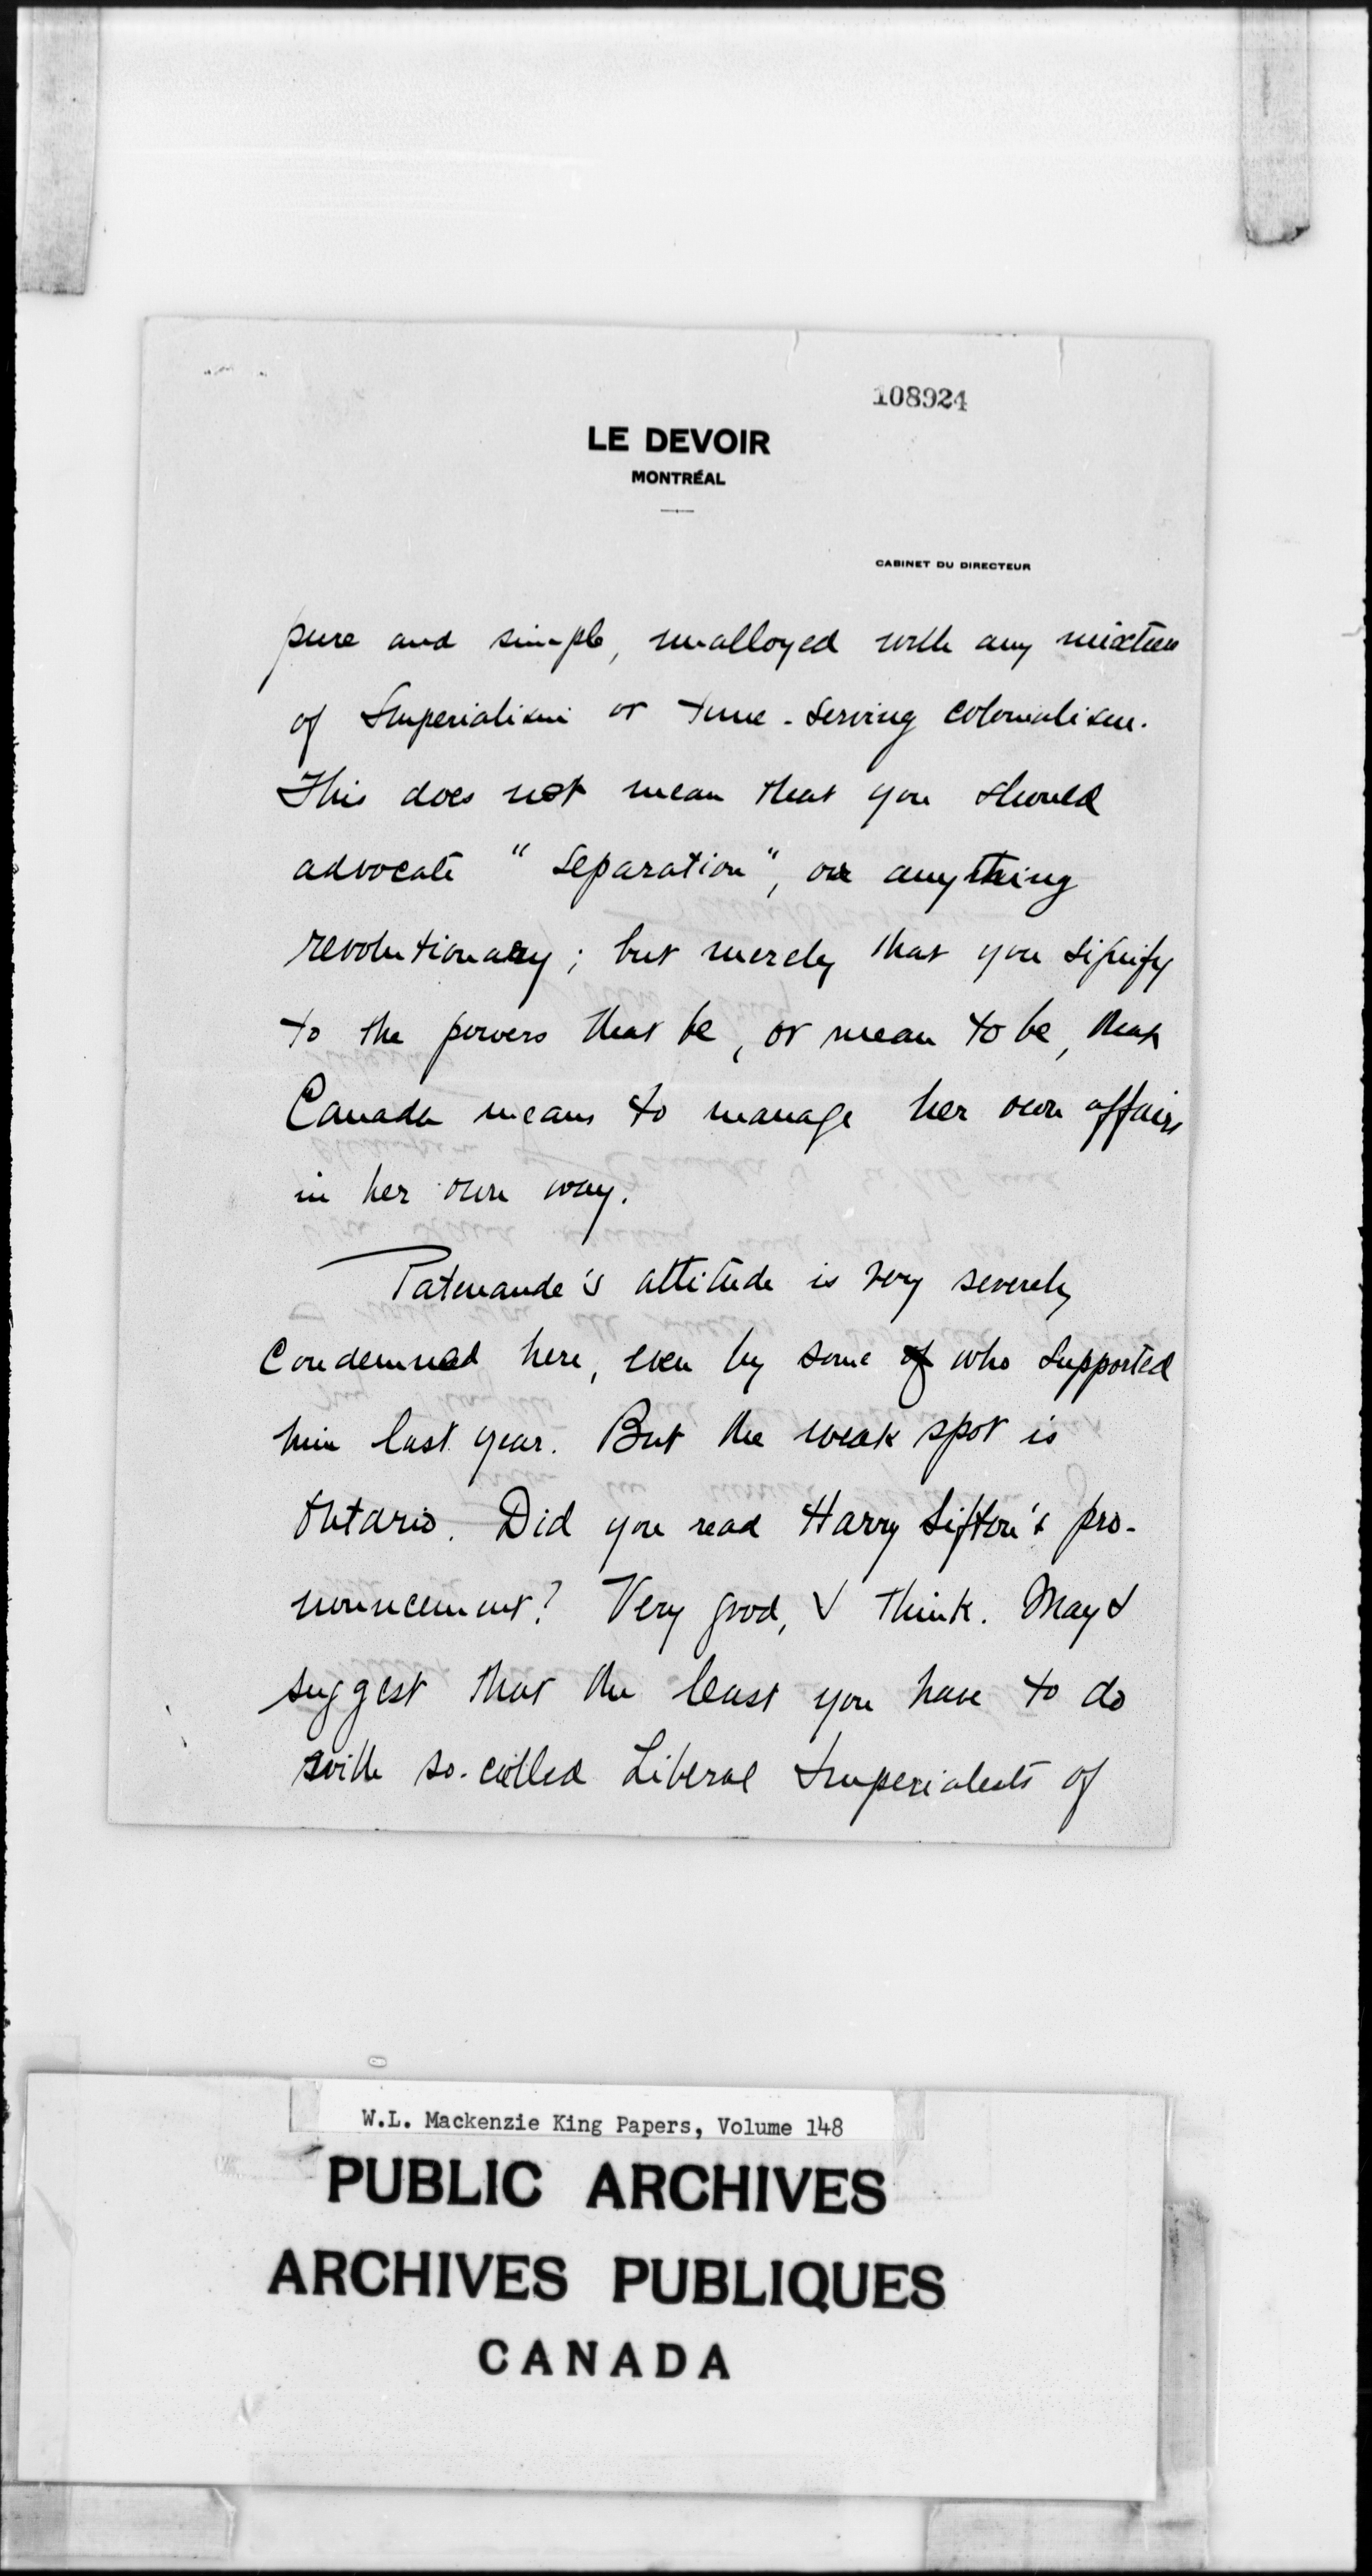 108924
LE DEVOIR
MONTRÉAL
CABINET DU DIRECTEUR
pure and simple, unalloyed with any mixture
of Imperialism or time-serving colonialism.
This does not mean that you should
advocate "separation", or anything
revolutionary; but merely that you signify
to the powers that be, or mean to be, that
Canada means to manage her own affairs
in her own way.
Patenaude's attitude is very severely
condemned here, even by some of who supported
him last year. But the weak spot is
Ontario. Did you read Harry Sifton's pro-
nouncement? Very good, I think. May I
suggest that the least you have to do
with so-called Liberal Imperialists of
W.L. Mackenzie King Papers, Volume 148
PUBLIC ARCHIVES
ARCHIVES PUBLIQUES
CANADA